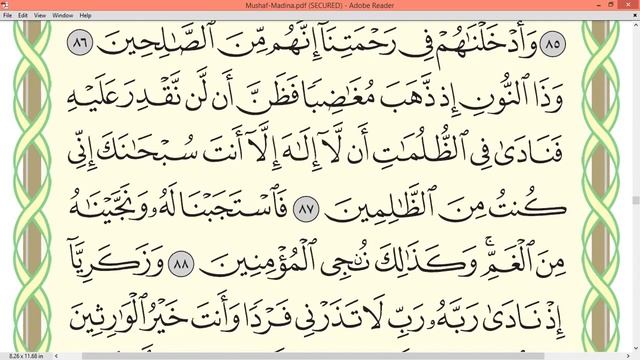 Mushaf-Madina.pdf (SECURED) - Adobe Reader
File Edit View Window Help
٨٥ وَأَدْخَلْنَٰهُمْ فِى رَحْمَتِنَآ إِنَّهُم مِّنَ ٱلصَّٰلِحِينَ ٨٦
وَذَا ٱلنُّونِ إِذ ذَّهَبَ مُغَٰضِبًا فَظَنَّ أَن لَّن نَّقْدِرَ عَلَيْهِ
فَنَادَىٰ فِى ٱلظُّلُمَٰتِ أَن لَّآ إِلَٰهَ إِلَّآ أَنتَ سُبْحَٰنَكَ إِنِّى
كُنتُ مِنَ ٱلظَّٰلِمِينَ ٨٧ فَٱسْتَجَبْنَا لَهُۥ وَنَجَّيْنَٰهُ
مِنَ ٱلْغَمِّ ۚ وَكَذَٰلِكَ نُۨجِى ٱلْمُؤْمِنِينَ ٨٨ وَزَكَرِيَّآ
إِذْ نَادَىٰ رَبَّهُۥ رَبِّ لَا تَذَرْنِى فَرْدًا وَأَنتَ خَيْرُ ٱلْوَٰرِثِينَ
8.26 x 11.68 in